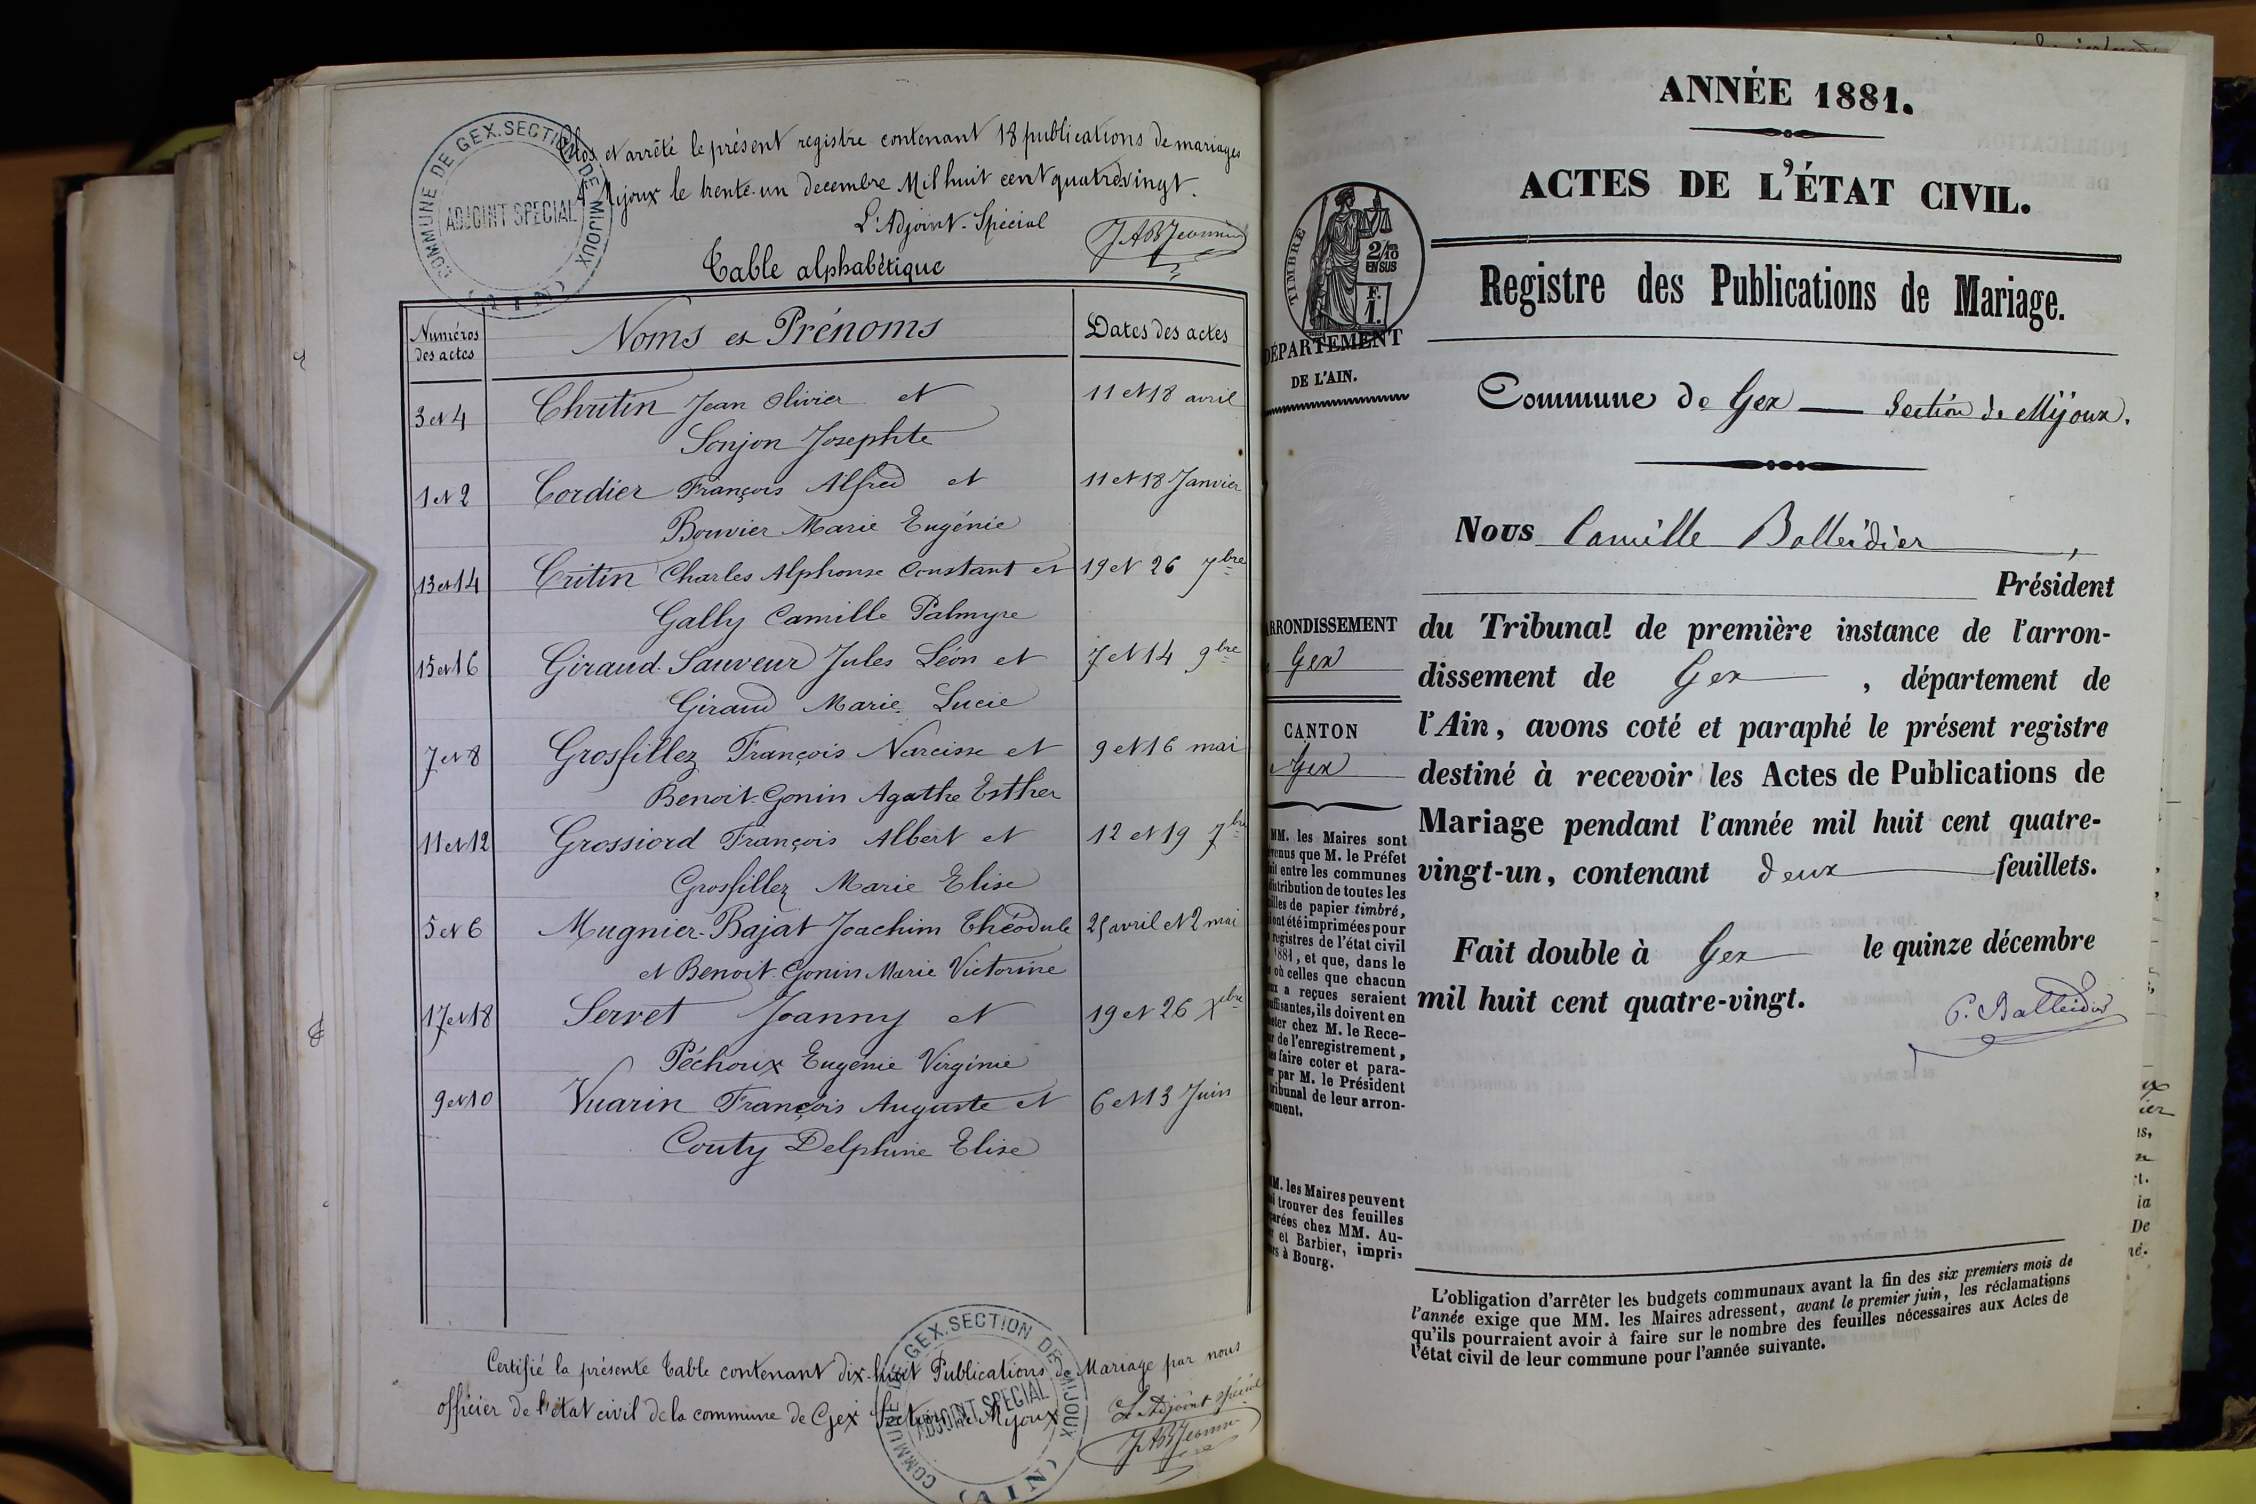 COMMUNE DE GEX. SECTION DE MIJOUX
ADJOINT SPECIAL
(AIN)
Clos et arrêté le présent registre contenant 18 publications de mariages
à Mijoux le trente-un decembre Mil huit cent quatre vingt.
L'Adjoint-Spécial
Table alphabétique
Numéros des actes
Noms et Prénoms
Dates des actes
3 et 4 Chrutin Jean Olivier et 11 et 18 avril
Sonjon Josephte
1 et 2 Cordier François Alfred et 11 et 18 Janvier
Bouvier Marie Eugénie
13 et 14 Critin Charles Alphonse Constant et 19 et 26 7bre
Gally Camille Palmyre
15 et 16 Giraud-Sauveur Jules Léon et 7 et 14 9bre
Giraud Marie Lucie
7 et 8 Grosfillez François Narcisse et 9 et 16 mai
Benoit-Gonin Agathe Esther
11 et 12 Grossiord François Albert et 12 et 19 7bre
Grosfillez Marie Elise
5 et 6 Mugnier-Bajat Joachim Théodule 25 avril et 2 mai
et Benoit-Gonin Marie Victorine
17 et 18 Servet Joanny et 19 et 26 Xbre
Péchoux Eugénie Virginie
9 et 10 Vuarin François Auguste et 6 et 13 Juin
Couty Delphine Elise
Certifié la présente table contenant dix-huit Publications de Mariage par nous
officier de l'état civil de la commune de Gex Section de Mijoux
L'Adjoint spécial
COMMUNE DE GEX. SECTION DE MIJOUX
ADJOINT SPECIAL
(AIN)
ANNÉE 1881.
ACTES DE L'ÉTAT CIVIL.
TIMBRE
2/10
EN SUS
F.
1.
Registre des Publications de Mariage.
DÉPARTEMENT
DE L'AIN.
Commune de Gex — Section de Mijoux.
Nous Camille Balleidier,
Président
du Tribunal de première instance de l'arron-
dissement de Gex, département de
l'Ain, avons coté et paraphé le présent registre
destiné à recevoir les Actes de Publications de
Mariage pendant l'année mil huit cent quatre-
vingt-un, contenant deux feuillets.
Fait double à Gex le quinze décembre
mil huit cent quatre-vingt.
C. Balleidier
ARRONDISSEMENT
Gex
CANTON
Gex
MM. les Maires sont
que M. le Préfet
entre les communes
de toutes les
de papier timbré,
ont été imprimées pour
registres de l'état civil
1881, et que, dans le
où celles que chacun
a reçues seraient
ils doivent en
chez M. le Rece-
de l'enregistrement,
faire coter et para-
par M. le Président
tribunal de leur arron-
MM. les Maires peuvent
trouver des feuilles
chez MM. Au-
et Barbier, impri-
à Bourg.
L'obligation d'arrêter les budgets communaux avant la fin des six premiers mois de
l'année exige que MM. les Maires adressent, avant le premier juin, les réclamations
qu'ils pourraient avoir à faire sur le nombre des feuilles nécessaires aux Actes de
l'état civil de leur commune pour l'année suivante.